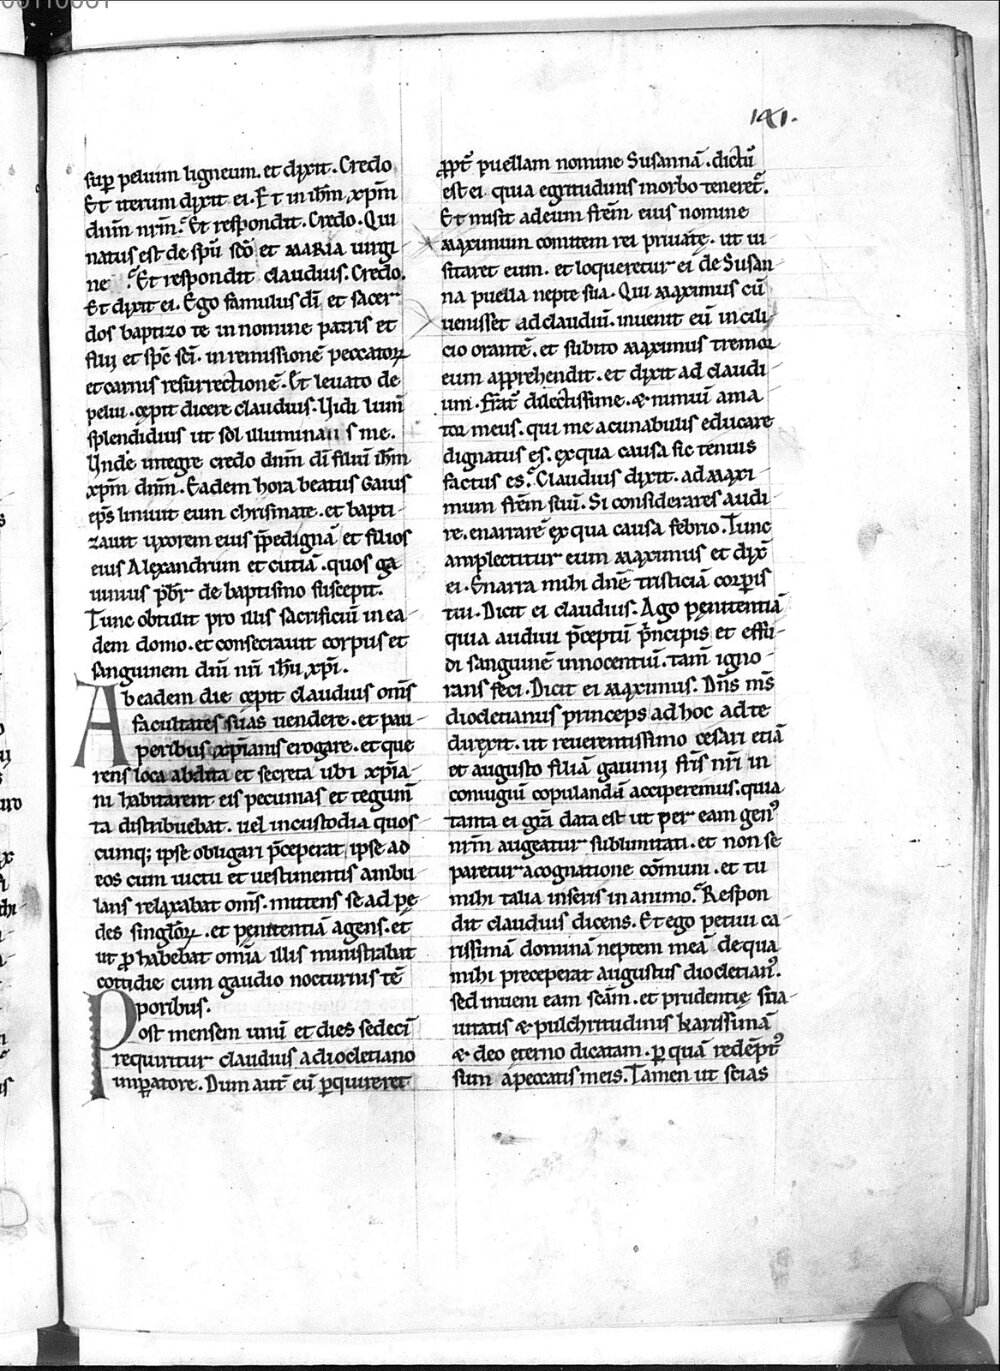 141.
sup peluim ligneum. et dixit. Credo
Et iterum dixit ei. Et in ihm̄ xp̄m
dnm̄ nrm̄. Et respondit. Credo. Qui
natus est de spū scō et MARIA uirgi
ne. Et respondit claudius. Credo.
Et dixit ei. Ego famulus dī et sacer
dos baptizo te in nomine patris et
filii et spc̄ scī. in remissionē peccatoꝝ
et carnis resurrectionē. Et leuato de
pelui. cępit dicere claudius. Uidi lum̄
splendidius ut sol illuminaui s me.
Unde integre credo dnm̄ dī filiū ihm̄
xp̄m dnm̄. Eadem hora beatus Gaius
ep̄s liniuit eum chrismate. et bapti
zauit uxorem eius p̄pedignā et filios
eius Alexandrum et cutiā. quos ga
uinius pb̄r de baptismo suscepit.
Tunc obtulit pro illis sacrificiū in ea
dem domo. et consecrauit corpus et
sanguinem dnī nrī ihū xp̄i.
Ab eadem die cępit claudius om̄s
facultates suas uendere. et pau-
peribus xp̄ianis erogare. et que
rens loca abdita et secreta ubi xp̄ia-
ni habitarent eis pecunias et tegum̄
ta distribuebat. uel in custodia quos
cumq; ipse obligari p̄ceperat ipse ad
eos cum uictu et uestimentis ambu
lans relaxabat om̄s. mittens se ad pe
des singloꝝ. et penitentiā agens. et
ut ꝓ habebat om̄ia illis ministrabat
cottidie cum gaudio nocturnis tē
poribus.
Post mensem unū et dies sedecī
requiritur claudius a diocletiano
imꝑatore. Dum aut̄ eū ꝑquireret
ꝓpt̄ puellam nomine Susannā. dictū
est ei quia egritudinis morbo teneret᷑.
Et misit ad eum frēm eius nomine
MAXimum comitem rei priuate. ut ui
sitaret eum. et loqueretur ei de Susan
na puella nepte sua. Qui MAXimus cū
uenisset ad claudiū. inuenit eū in cili
cio orantē. et subito MAXimus tremor
eum apprehendit. et dixit ad claudi
um. Frat̄ dilectissime. & nimiū ama
tor meus. qui me a cunabulis educare
dignatus es. ex qua causa sic tenuis
factus es. Claudius dixit. ad MAXi
mum frēm suū. Si considerares audi
re. enarrarē ex qua causa febrio. Tunc
amplectitur eum MAXimus et dix̄
ei. Enarra mihi dnē tristiciā corꝑis
tui. Dicit ei claudius. Ago penitentiā
quia audiui p̄ceptū p̄ncipis et effu-
di sanguinē innocentiū. tam̄ igno
rans feci. Dicit ei MAXimus. Dn̄s ms̄
diocletianus princeps ad hoc ad te
direxit. ut reuerentissimo cesari etiā
et augusto filiā gauinii fr̄is nrī in
coniugiū copulandā acciperemus. quia
tanta ei gr̄a data est ut per eam genꝰ
nrm̄ augeatur sublimitati. et non se
paretur a cognatione com̄uni. et tu
mihi talia inseris in animo. Respon
dit claudius dicens. Et ego petiui ca
rissimā dominā neptem meā de qua
mihi preceperat augustus diocletianꝰ.
sed inueni eam scām. et prudentię
& pulchritudinis karissimā
& deo eterno dicatam. ꝑ quā redēptꝰ
sum a peccatis meis. Tamen ut scias